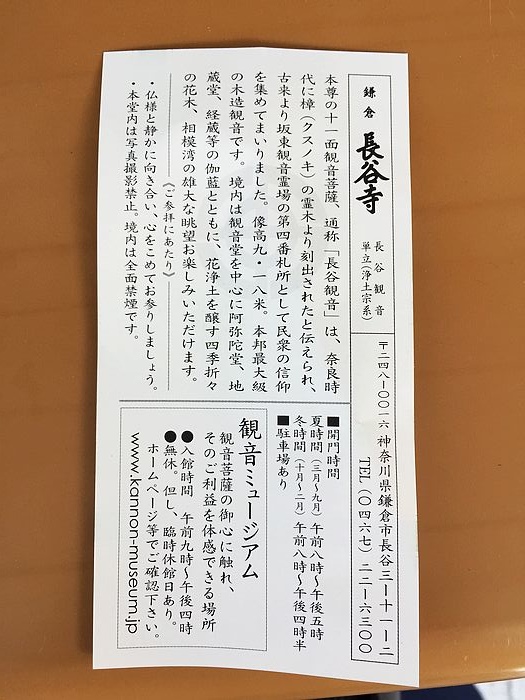 鎌倉 長谷寺
長谷観音
単立(浄土宗系)
〒二四八-〇〇一六 神奈川県鎌倉市長谷三-十一-二
TEL(〇四六七)二二-六三〇〇
本尊の十一面観音菩薩、通称「長谷観音」は、奈良時
代に樟(クスノキ)の霊木より刻出されたと伝えられ、
古来より坂東観音霊場の第四番札所として民衆の信仰
を集めてまいりました。像高九・一八米。本邦最大級
の木造観音です。境内は観音堂を中心に阿弥陀堂、地
蔵堂、経蔵等の伽藍とともに、花浄土を醸す四季折々
の花木、相模湾の雄大な眺望お楽しみいただけます。
《ご参拝にあたり》
・仏様と静かに向き合い、心をこめてお参りしましょう。
・本堂内は写真撮影禁止。境内は全面禁煙です。
■開門時間
夏時間(三月~九月)午前八時~午後五時
冬時間(十月~二月)午前八時~午後四時半
■駐車場あり
観音ミュージアム
観音菩薩の御心に触れ、
そのご利益を体感できる場所
●入館時間 午前九時~午後四時
●無休。但し、臨時休館日あり。
ホームページ等でご確認下さい。
www.kannon-museum.jp